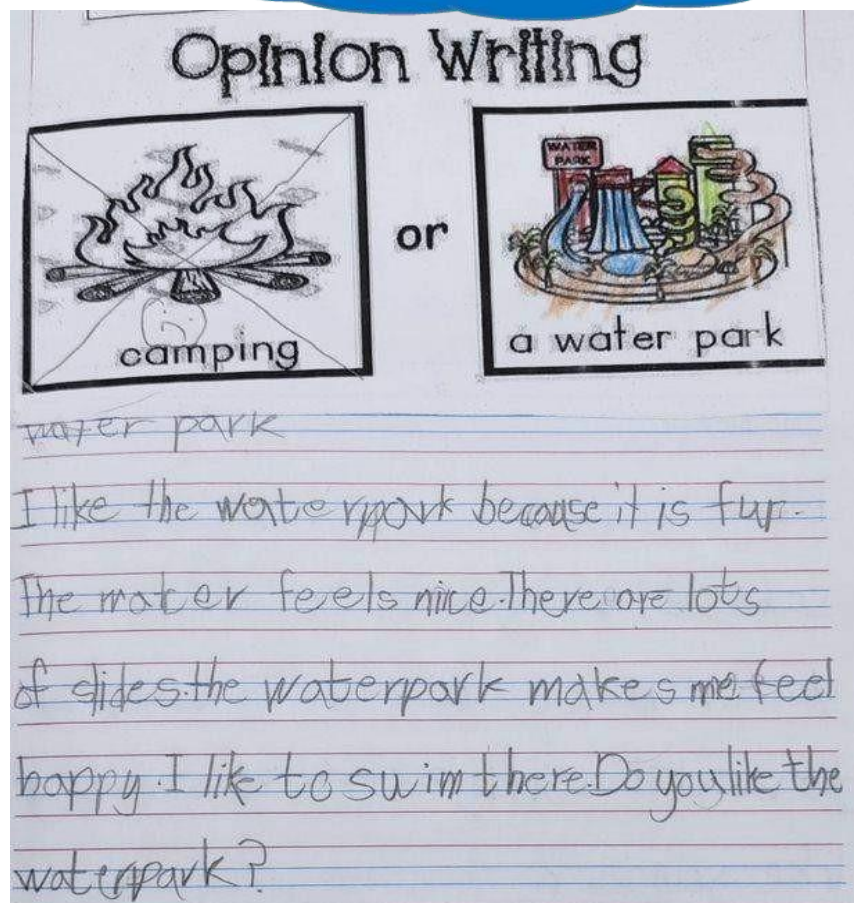 Opinion Writing
WATER
PARK
or
camping
a water park
water park
I like the waterpark because it is fun.
The water feels nice. There are lots
of slides. the waterpark makes me feel
happy. I like to swim there. Do you like the
waterpark?